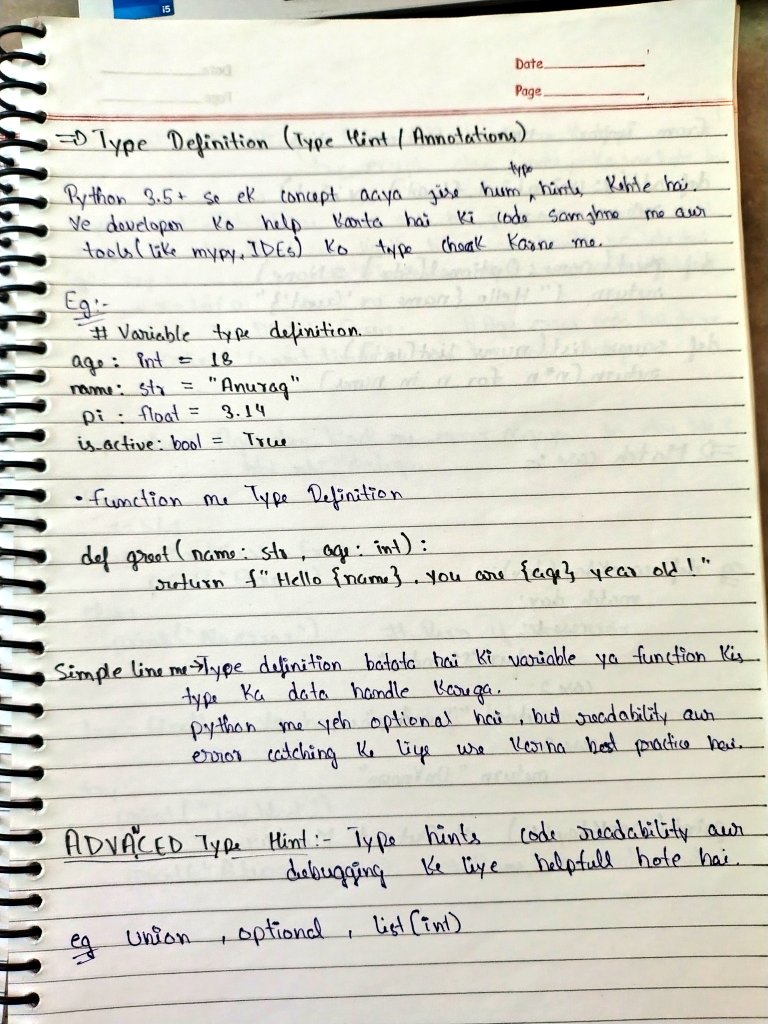 i5
Date
Page
⇒ Type Definition (Type Hint / Annotations)
Python 3.5+ se ek concept aaya jise hum type hints kehte hai.
Ye developer ko help karta hai ki code samjhne me aur
tools (like mypy, IDEs) ko type cheak karne me.
Eg:-
# Variable type definition.
age: int = 18
name: str = "Anurag"
pi : float = 3.14
is_active: bool = True
• function me Type Definition
def greet (name: str, age: int):
return f"Hello {name}, you are {age} year old!"
Simple line me → Type definition batata hai ki variable ya function kis
type ka data handle karega.
python me yeh optional hai, but readability aur
error catching ke liye use karna best practice hai.
ADVANCED Type Hint:- Type hints code readability aur
debugging ke liye helpfull hote hai.
eg union, optional, list(int)